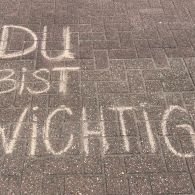 DU
BiST
WiCHTiG